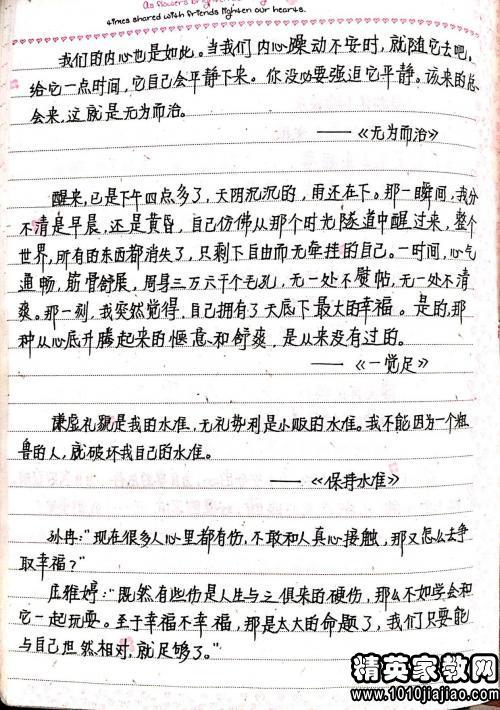 As flowers brighten
times shared with friends lighten our hearts.
我们的内心也是如此。当我们内心躁动不安时，就随它去吧。
给它一点时间，它自己会平静下来。你没必要强迫它平静。该来的总
会来，这就是无为而治。
——《无为而治》
醒来，已是下午四点多了，天阴沉沉的，雨还在下。那一瞬间，我分
不清是早晨，还是黄昏，自己仿佛从那个时光隧道中醒过来，整个
世界，所有的东西都消失了，只剩下自由而无牵挂的自己。一时间，心气
通畅，筋骨舒展，周身三万六千个毛孔，无一处不熨帖，无一处不清
爽。那一刻，我突然觉得，自己拥有了天底下最大的幸福。是的，那
种从心底升腾起来的惬意和舒爽，是从来没有过的。
——《一觉足》
谦虚礼貌是我的水准，无礼势利是小贩的水准。我不能因为一个粗
鲁的人，就破坏我自己的水准。
——《保持水准》
孙冉：“现在很多人心里都有伤，不敢和人真心接触，那又怎么去争
取幸福？”
庄雅婷：“既然有些伤是人生与之俱来的硬伤，那么不如学会和
它一起玩耍。至于幸福不幸福，那是太大的命题了，我们只要能
与自己坦然相对，就足够了。”
精英家教网
www.1010jiajiao.com